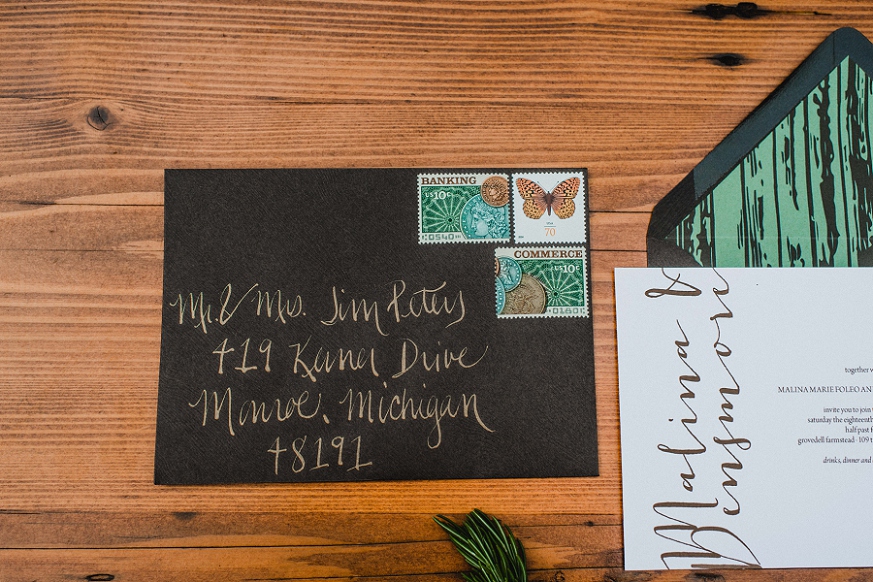 BANKING
US 10c
USA
70
COMMERCE
US 10c
Mr. & Mrs. Jim Peters
419 Keiner Drive
Monroe, Michigan
48191
Malina &
Densmore
together w
MALINA MARIE FOLEO AN
invite you to join t
saturday the eighteenth
half past f
grovedell farmstead · 109 t
drinks, dinner and